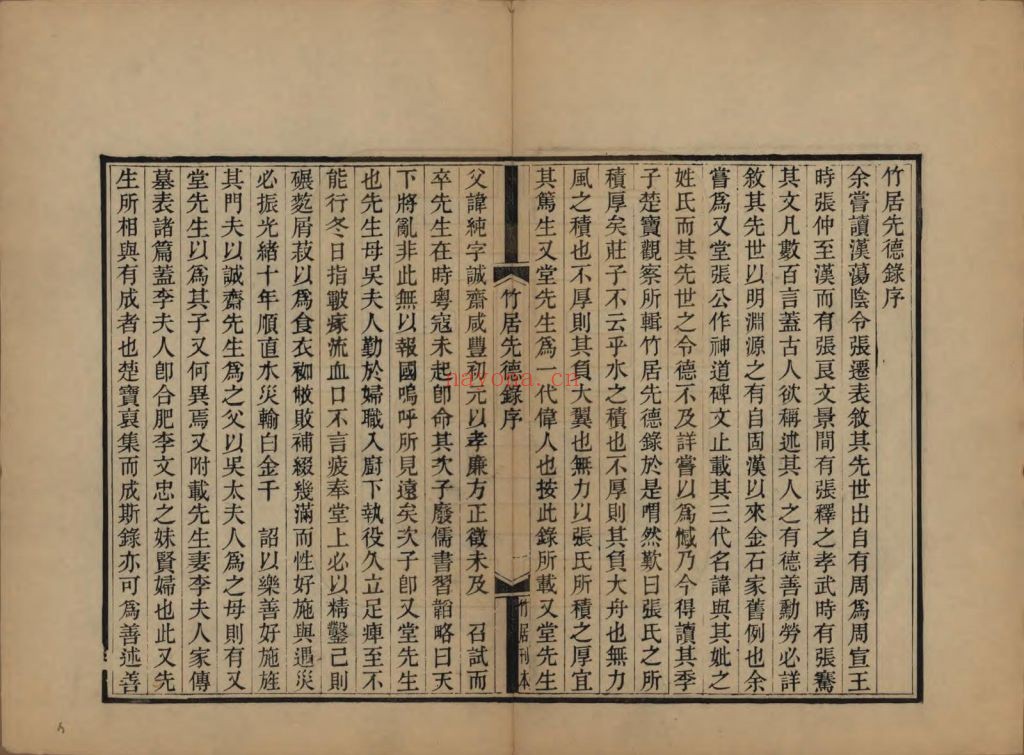 竹居先德錄序
余嘗讀漢蕩陰令張遷表敘其先世出自有周爲周宣王
時張仲至漢而有張良文景間有張釋之孝武時有張騫
其文凡數百言蓋古人欲稱述其人之有德善勳勞必詳
敘其先世以明淵源之有自固漢以來金石家舊例也余
嘗爲又堂張公作神道碑文止載其三代名諱與其妣之
姓氏而其先世之令德不及詳嘗以爲憾乃今得讀其季
子楚寶觀察所輯竹居先德錄於是喟然歎曰張氏之所
積厚矣莊子不云乎水之積也不厚則其負大舟也無力
風之積也不厚則其負大翼也無力以張氏所積之厚宜
其篤生又堂先生爲一代偉人也按此錄所載又堂先生
竹居先德錄序
一
竹居刊本
父諱純字誠齋咸豐初元以孝廉方正徵未及 召試而
卒先生在時粵寇未起卽命其次子廢儒書習韜略曰天
下將亂非此無以報國嗚呼所見遠矣次子卽又堂先生
也先生母吳夫人勤於婦職入廚下執役久立足痺至不
能行冬日指皸瘃流血口不言疲奉堂上必以精鑿己則
碾麧屑菽以爲食衣袽敝敗補綴幾滿而性好施與遇災
必振光緒十年順直水災輸白金千 詔以樂善好施旌
其門夫以誠齋先生爲之父以吳太夫人爲之母則有又
堂先生以爲其子又何異焉又附載先生妻李夫人家傳
墓表諸篇蓋李夫人卽合肥李文忠之妹賢婦也此又先
生所相與有成者也楚寶裒集而成斯錄亦可爲善述善
nayona.cn